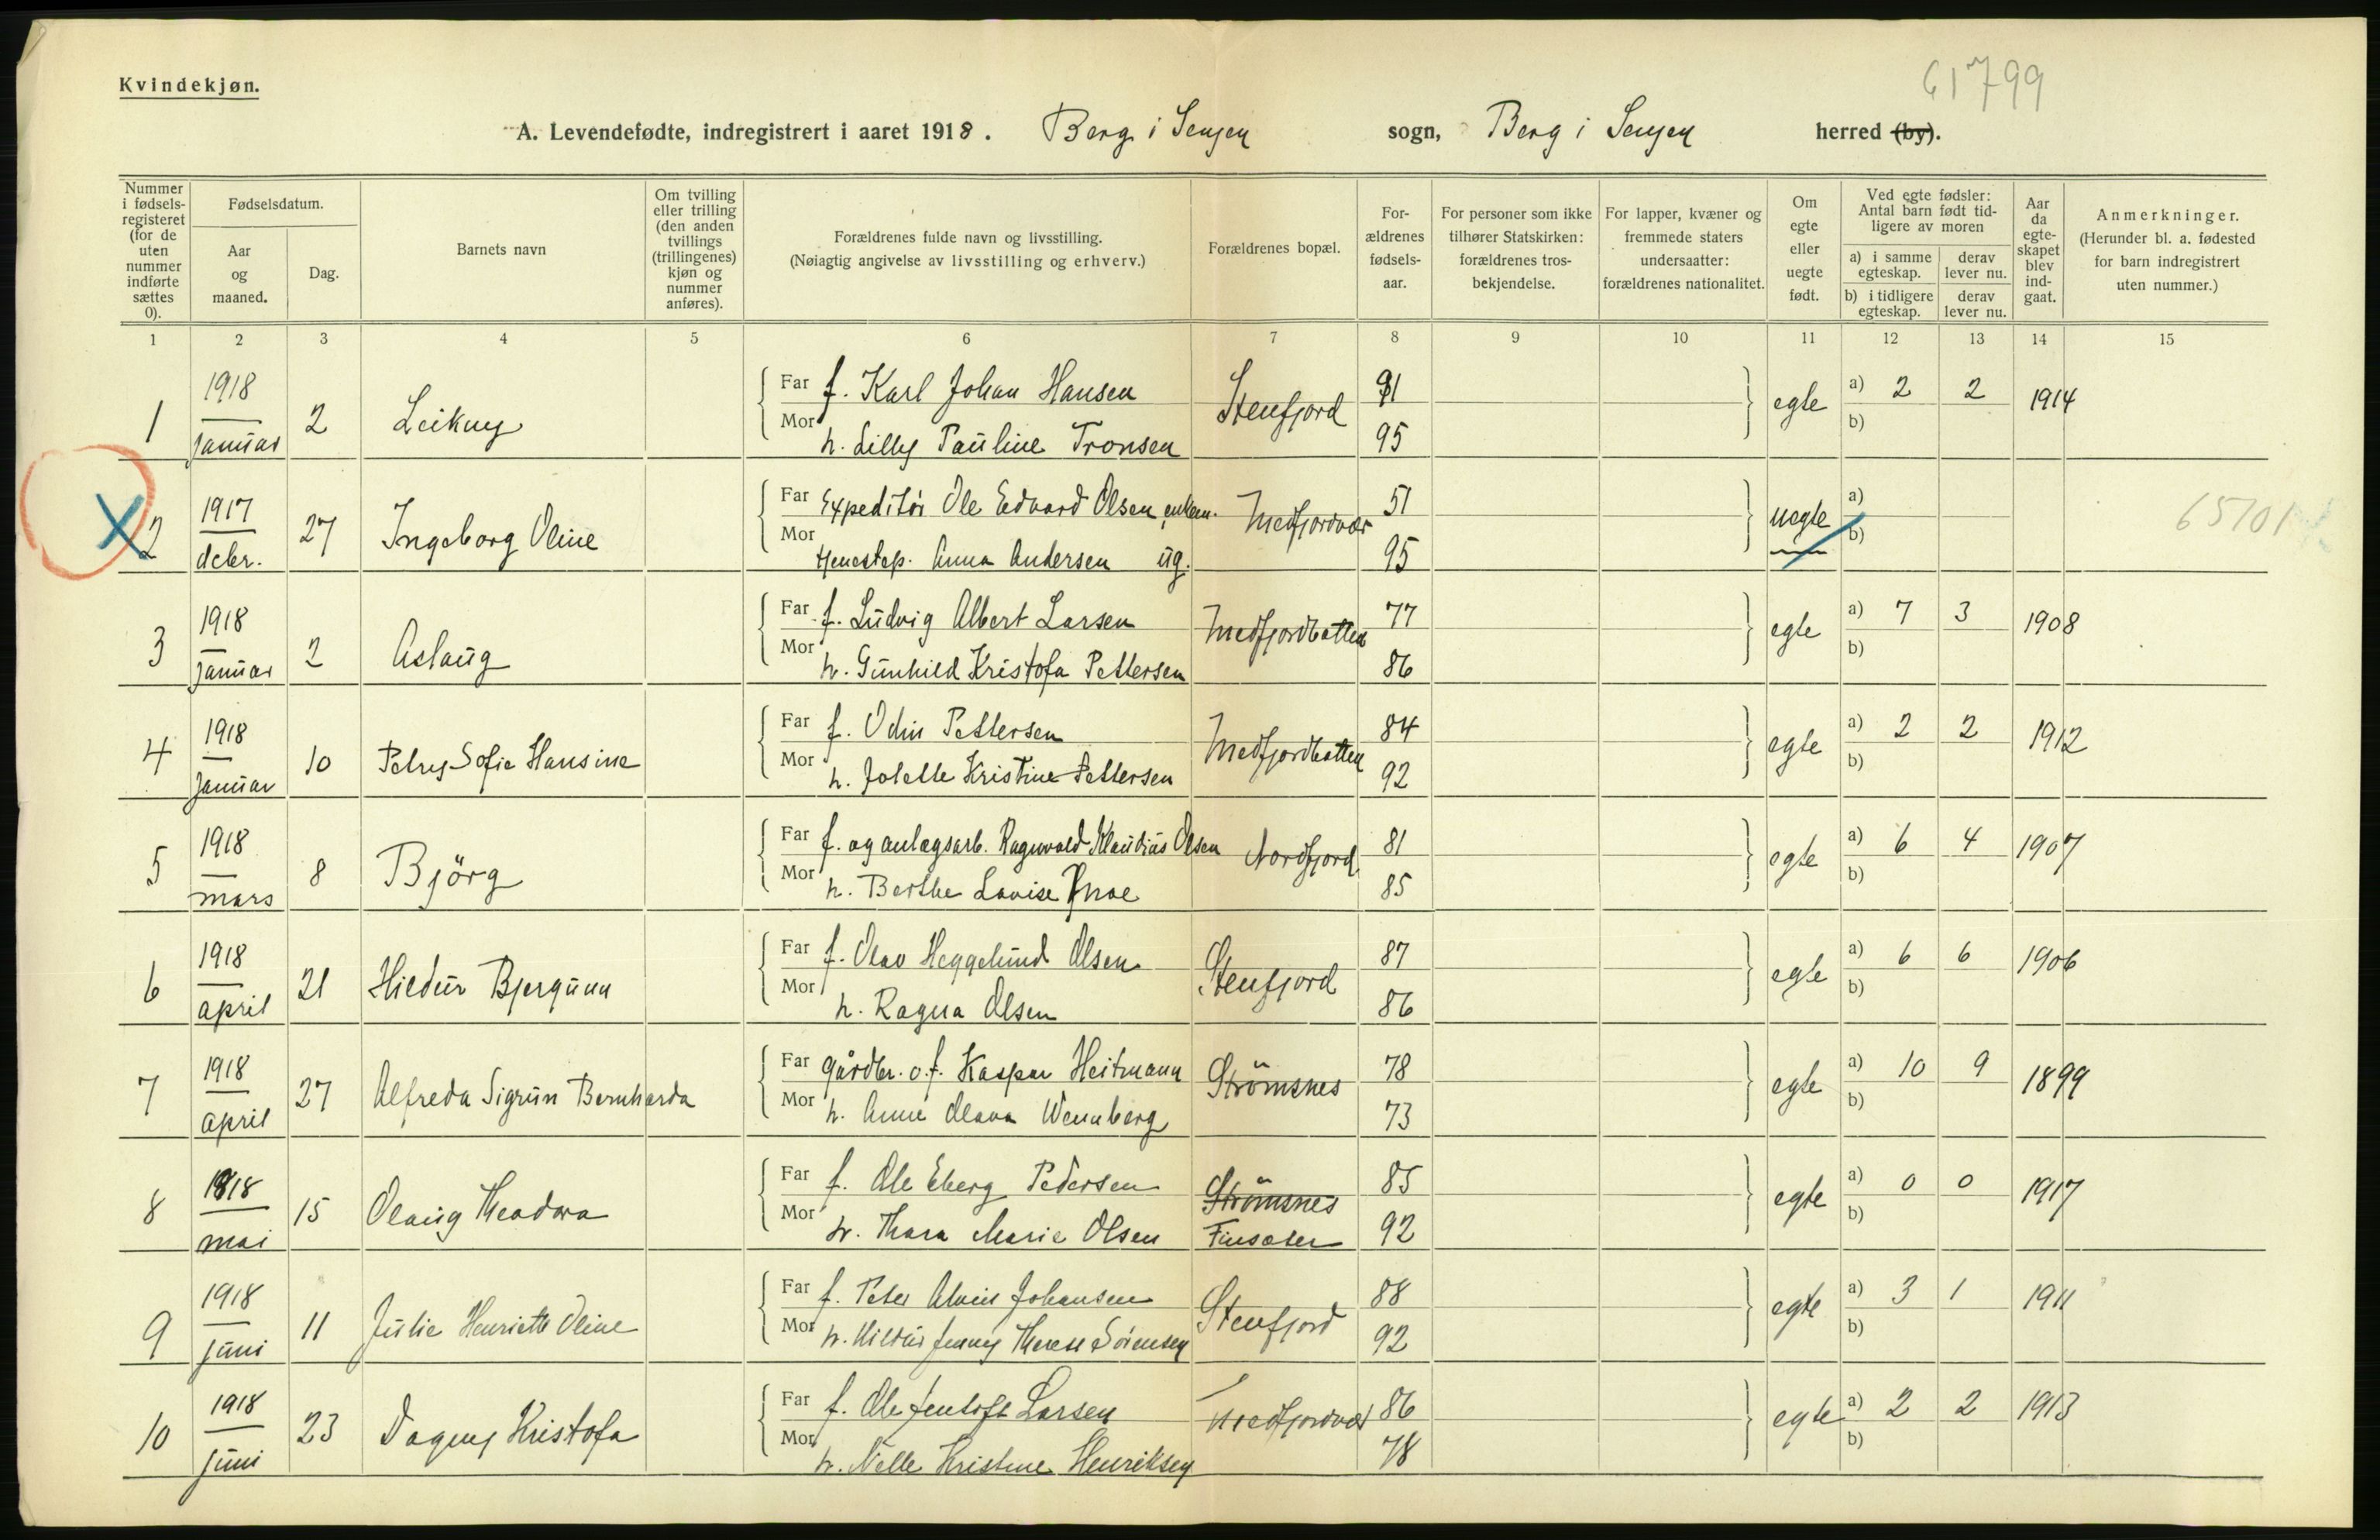 61799
Kvindekjøn.
A. Levendefødte, indregistrert i aaret 1918. Berg i Senjen sogn, Berg i Senjen herred (by).
Nummer i fødsels-registeret (for de uten nummer indførte sættes 0).
Fødselsdatum.
Aar og maaned.
Dag.
Barnets navn
Om tvilling eller trilling (den anden tvillings (trillingenes) kjøn og nummer anføres).
Forældrenes fulde navn og livsstilling.
(Nøiagtig angivelse av livsstilling og erhverv.)
Forældrenes bopæl.
For-ældrenes fødsels-aar.
For personer som ikke tilhører Statskirken: forældrenes tros-bekjendelse.
For lapper, kvæner og fremmede staters undersaatter: forældrenes nationalitet.
Om egte eller uegte født.
Ved egte fødsler: Antal barn født tid-ligere av moren
a) i samme egteskap.
derav lever nu.
b) i tidligere egteskap.
derav lever nu.
Aar da egte-skapet blev ind-gaat.
Anmerkninger.
(Herunder bl. a. fødested for barn indregistrert uten nummer.)
1 2 3 4 5 6 7 8 9 10 11 12 13 14 15
1 1918 januar 2 Leikny Far f. Karl Johan Hansen Stenfjord 91 egte a) 2 2 1914
Mor h. Lilly Pauline Tronsen 95 b)
2 1917 decbr. 27 Ingeborg Oline Far Expeditør Ole Edvard Olsen, enkem. Medfjordvær 51 uegte a) 65701
Mor tjenestep. Anna Andersen ug. 95 b)
3 1918 januar 2 Aslaug Far f. Ludvig Albert Larsen Medfjordbotten 77 egte a) 7 3 1908
Mor h. Gunhild Kristofa Pettersen 86 b)
4 1918 januar 10 Petry Sofie Hansine Far f. Odin Pettersen Medfjordbotten 84 egte a) 2 2 1912
Mor h. Jolette Kristine Pettersen 92 b)
5 1918 mars 8 Björg Far f. og anlægsarb. Ragnvald Klaudius Olsen Nordfjord 81 egte a) 6 4 1907
Mor h. Berthe Lovise 85 b)
6 1918 april 21 Hildur Bjergunn Far f. Olav Heggelund Olsen Stenfjord 87 egte a) 6 6 1906
Mor h. Ragna Olsen 86 b)
7 1918 april 27 Alfreda Sigrun Bernharda Far gårdbr. o. f. Kaspar Heitmann Strömsnes 78 egte a) 10 9 1899
Mor h. Anne Olava Wennberg 73 b)
8 1918 mai 15 Olaug Theodora Far f. Ole Eberg Pedersen Strömsnes 85 egte a) 0 0 1917
Mor h. Thora Marie Olsen Finsæter 92 b)
9 1918 juni 11 Julie Henriette Oline Far f. Peter Alvin Johansen Stenfjord 88 egte a) 3 1 1911
Mor h. Hildur Jenny Therese Sörensen 92 b)
10 1918 juni 23 Dagny Kristofa Far f. Ole Jentoft Larsen Medfjordvær 86 egte a) 2 2 1913
Mor h. Nelle Kristine Henriksen 78 b)